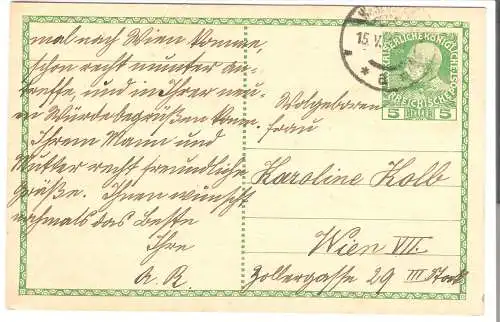 mal nach Wien komme,
schon recht munter an-
treffe, und in Ihrer neu-
en Würde begrüßen kann.
Ihrem Mann und
Mutter recht freundliche
Grüße. Ihnen wünscht
nochmals das Beste
Ihre
A. R
15. V.
KAISERLICHE KÖNIGLICHE
5 HELLER 5
Wolgeboren
Frau
Karoline Kolb
Wien VII.
Zollergasse 29 III Stock